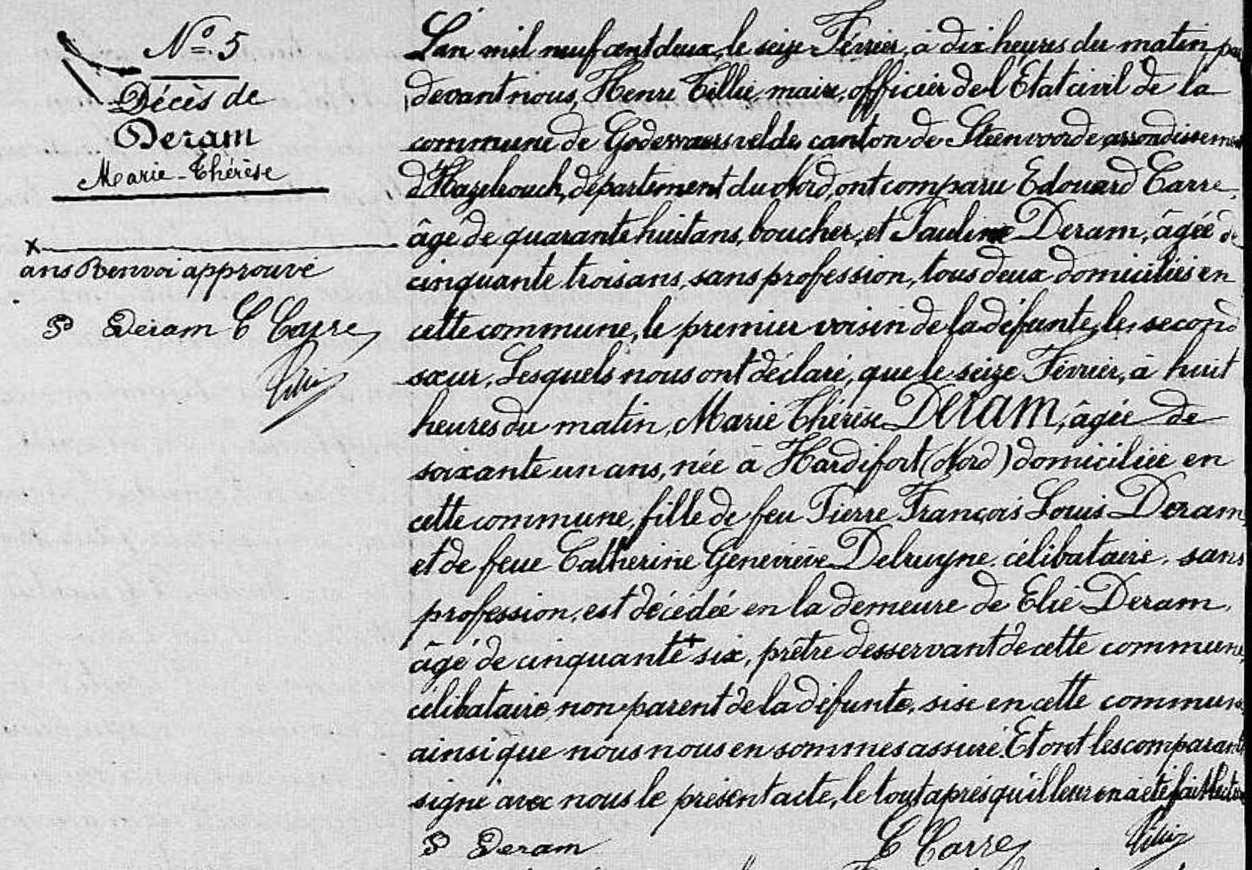 N° 5
Décès de
Deram
Marie-Thérèse
x
ans Renvoi approuvé
P Deram E Carre
Tillie
L'an mil neuf cent deux, le seize Février, à dix heures du matin, par
devant nous, Henri Tillie maire, officier de l'Etat civil de la
commune de Godewaersvelde canton de Steenvoorde arrondissement
d'Hazebrouck, département du Nord, ont comparu Edouard Carre,
âgé de quarante huit ans, boucher, et Pauline Deram, âgée de
cinquante trois ans, sans profession, tous deux domiciliés en
cette commune, le premier voisin de la défunte, le second
sœur, Lesquels nous ont déclaré, que le seize Février, à huit
heures du matin, Marie Thérèse Deram, âgée de
soixante un ans, née à Hardifort (Nord) domiciliée en
cette commune, fille de feu Pierre François Louis Deram,
et de feue Catherine Geneviève Delruyne, célibataire, sans
profession, est décédée en la demeure de Elie Deram,
âgé de cinquante x six, prêtre desservant de cette commune,
célibataire, non parent de la défunte, sise en cette commune
ainsi que nous nous en sommes assuré. Et ont les comparants
signé avec nous le présent acte, le tout après qu'il leur en a été fait lecture
P Deram E Carre Tillie